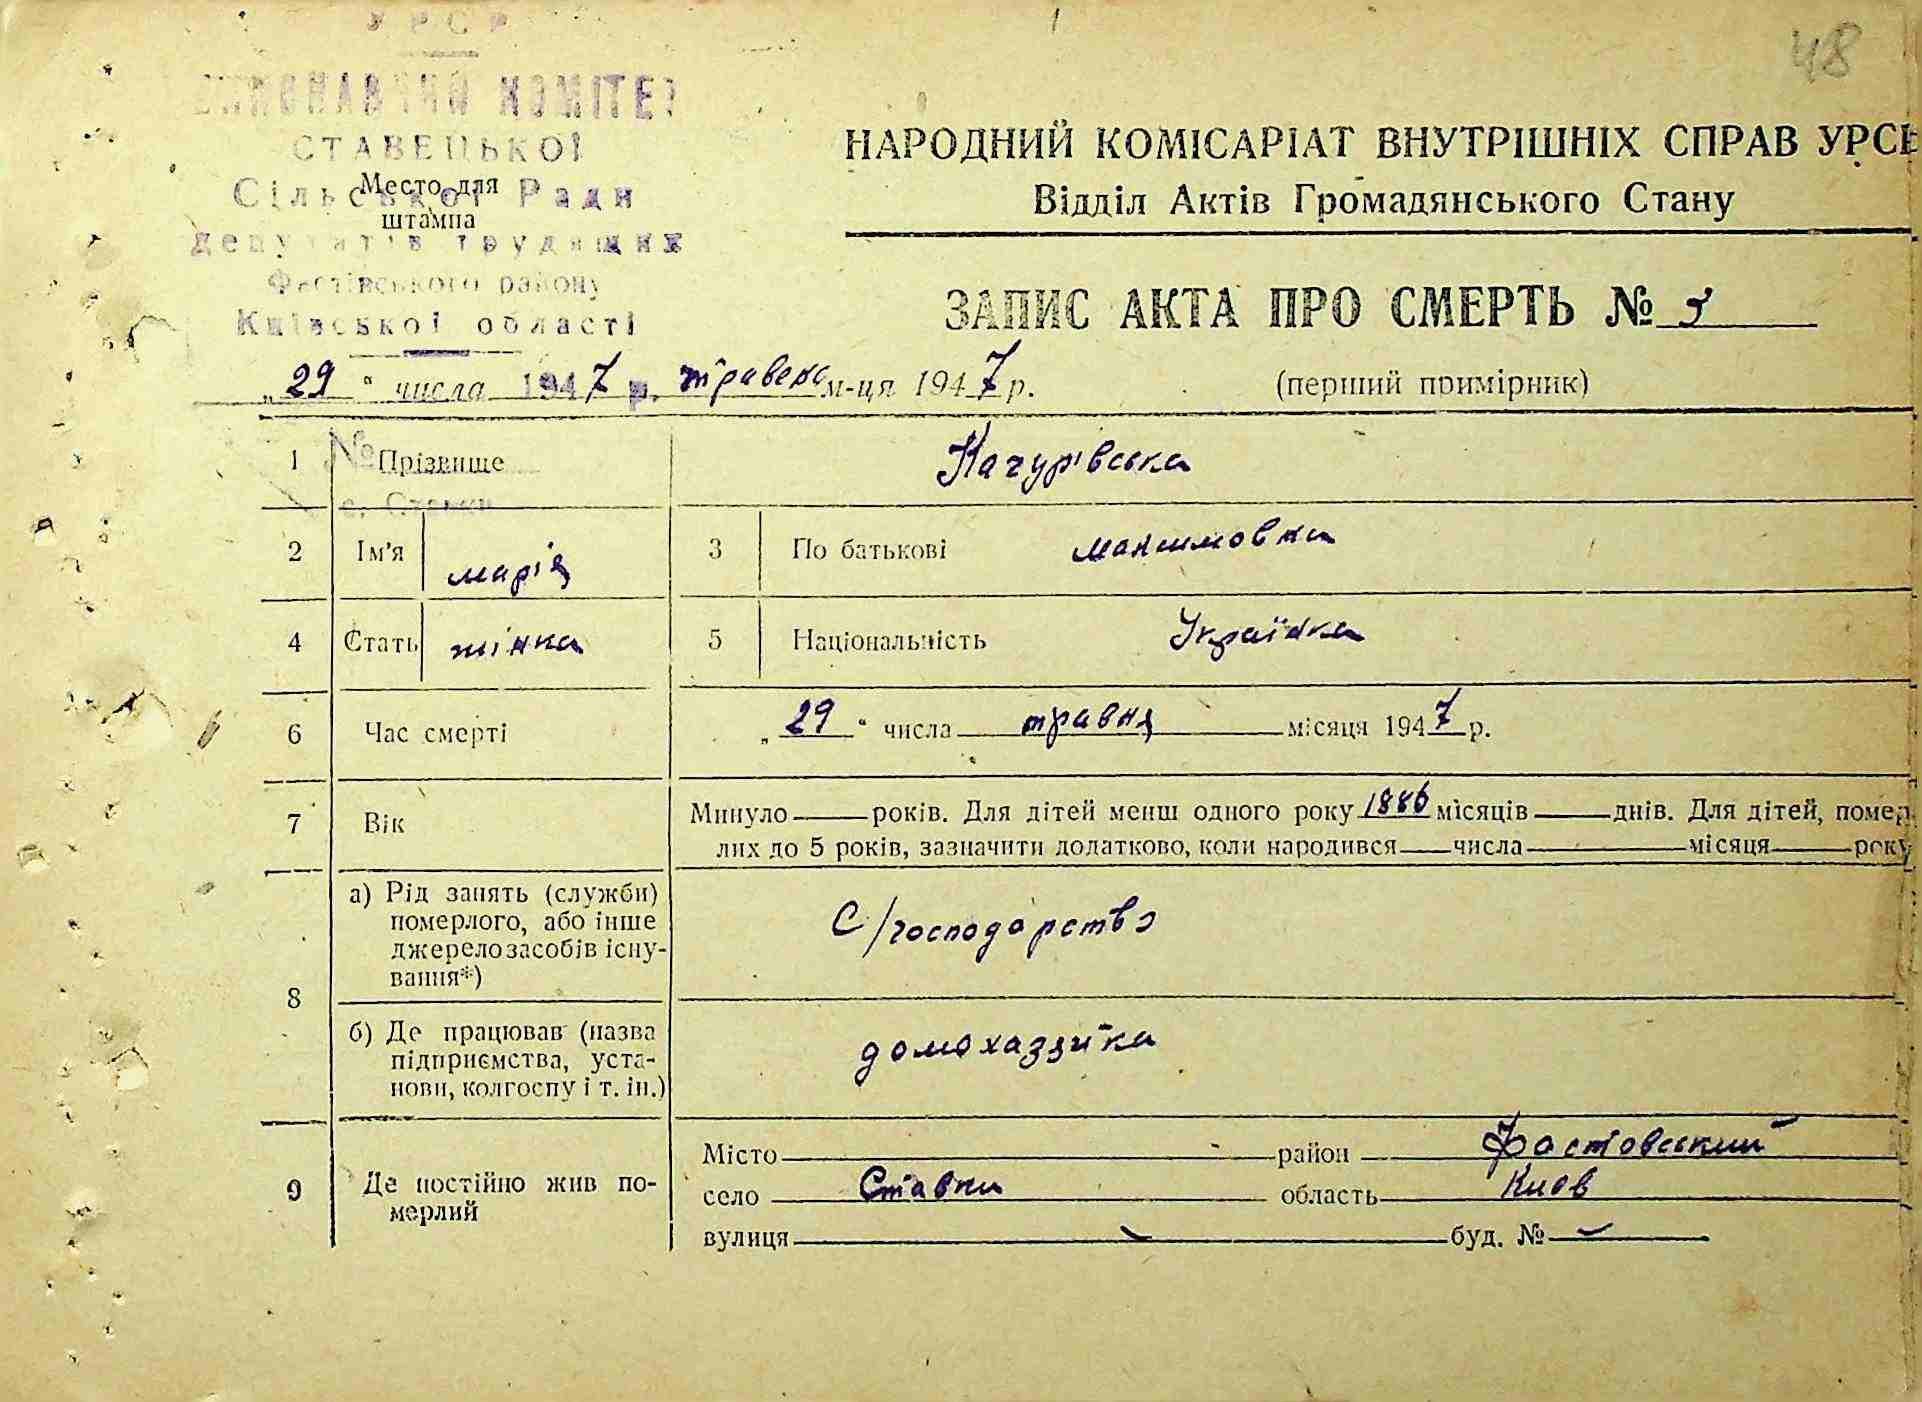 48
УРСР
ВИКОНАВЧИЙ КОМІТЕТ
СТАВЕЦЬКОЇ
Сільської Ради
Место для
штампа
депутатів трудящих
Фастівського району
Київської області
НАРОДНИЙ КОМІСАРІАТ ВНУТРІШНІХ СПРАВ УРСР
Відділ Актів Громадянського Стану
ЗАПИС АКТА ПРО СМЕРТЬ № 5
„29" числа 1947 р. травена м-ця 1947 р.
(перший примірник)
№
с. Ставки
1 Прізвище Качурівська
2 Ім'я марія 3 По батькові максимовна
4 Стать жінка 5 Національність Українка
6 Час смерті „29" числа травня місяця 1947 р.
7 Вік Минуло — років. Для дітей менш одного року 1886 місяців — днів. Для дітей, помер-
лих до 5 років, зазначити додатково, коли народився — числа — місяця — року
8 а) Рід занять (служби)
померлого, або інше
джерело засобів існу-
вання*)
С/господарство
б) Де працював (назва
підприємства, уста-
нови, колгоспу і т. ін.)
домохазяйка
9 Де постійно жив по-
мерлий
Місто — район Фастовський
село Ставки область Киев
вулиця — буд. № —